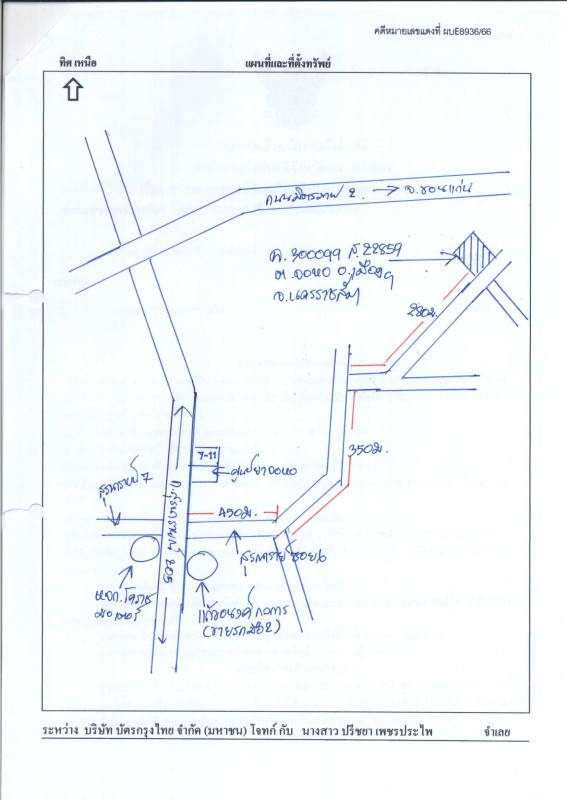 คดีหมายเลขแดงที่ ผบE8936/66
ทิศ เหนือ
แผนที่และที่ตั้งทรัพย์
ถนนมิตรภาพ 2 → จ.ขอนแก่น
ฉ.300099 ส.22859
ต.จอหอ อ.เมืองฯ
จ.นครราชสีมา
280ม.
350ม.
7-11
ศูนย์ยาจอหอ
สุรนารายณ์ 7
450ม.
ถ.สุรนารายณ์ 205
สุรนารายณ์ ซอย 6
หจก.โคราช
มอเตอร์
กิจการ
(ขายรถมือ2)
ระหว่าง บริษัท บัตรกรุงไทย จำกัด (มหาชน) โจทก์ กับ นางสาว ปรีชยา เพชรประไพ จำเลย